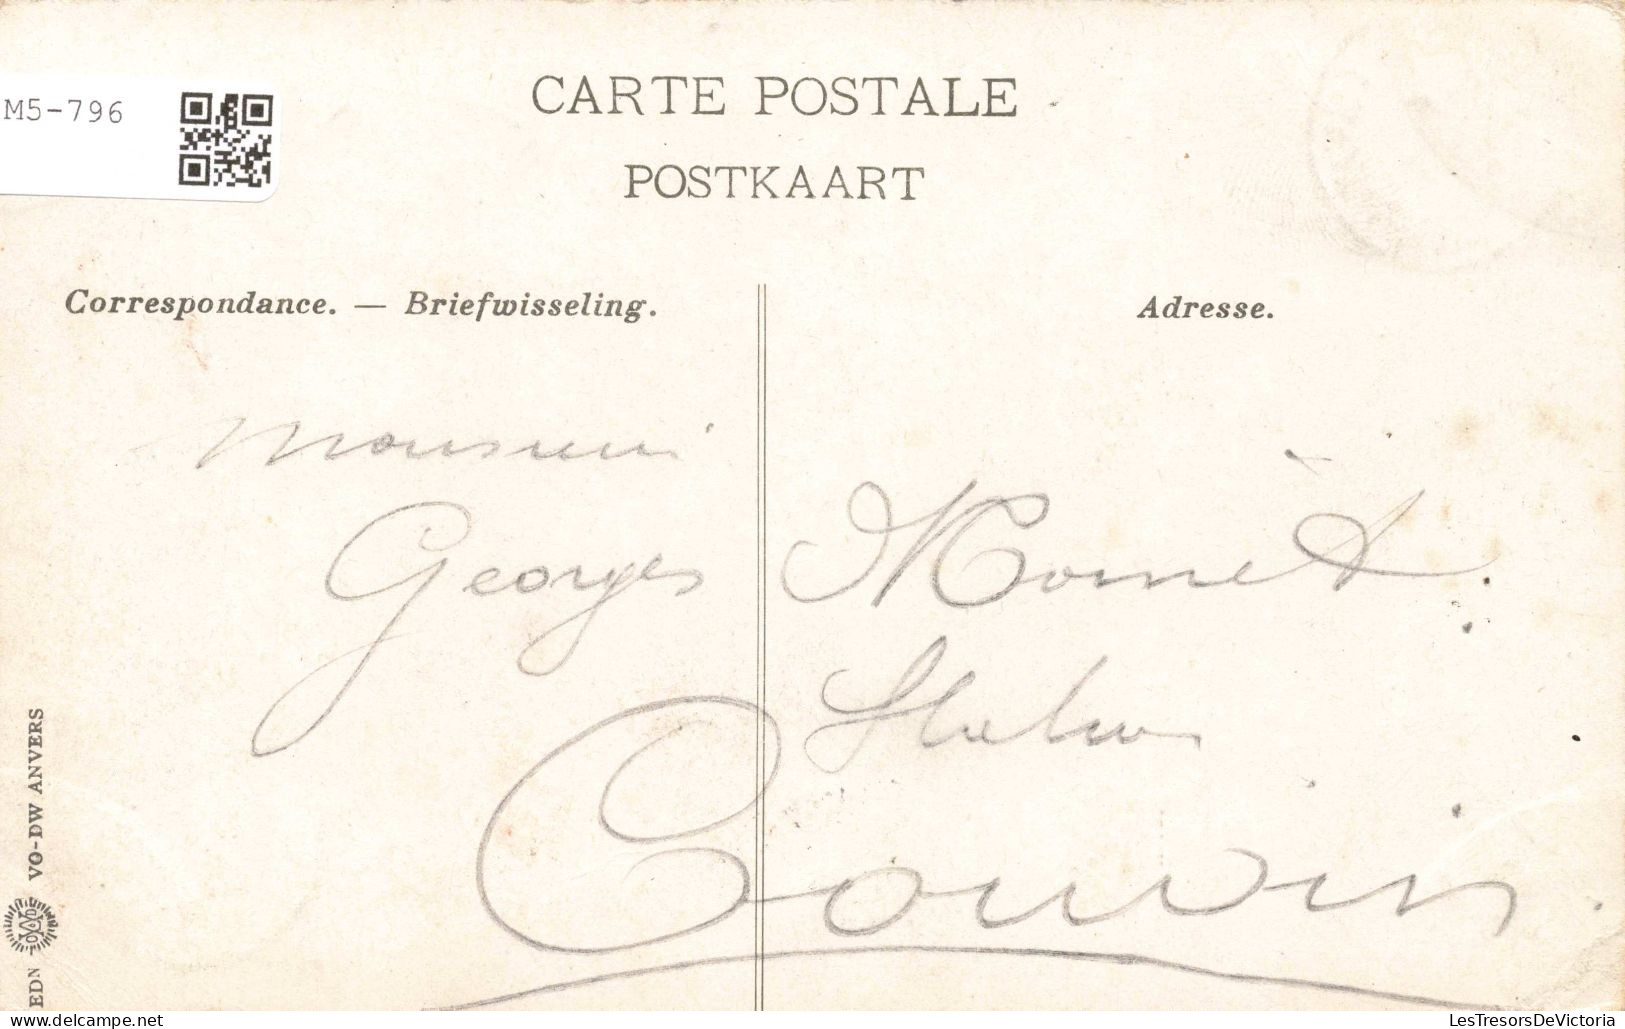 M5-796
CARTE POSTALE
POSTKAART
Correspondance. — Briefwisseling.
Adresse.
Monsieur
Georges
Couvin
EDN VO-DW ANVERS
LesTresorsDeVictoria